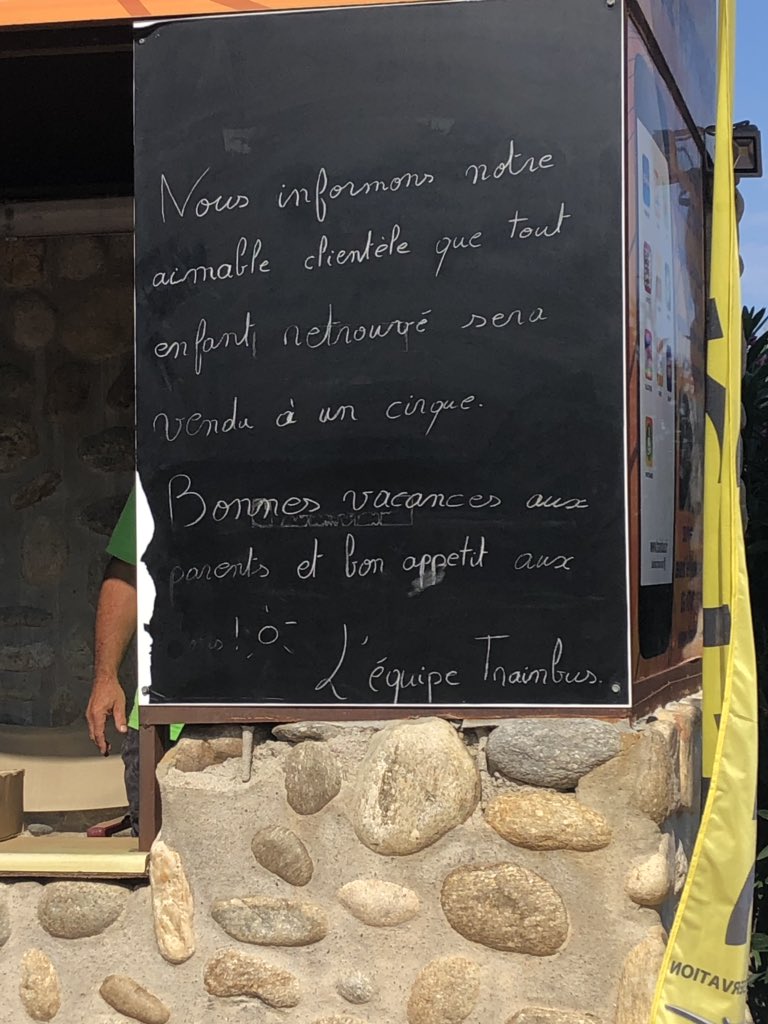 Nous informons notre
aimable clientèle que tout
enfant retrouvé sera
vendu à un cirque.
Bonnes vacances aux
parents et bon appétit aux
!
L'équipe Trainbus.
RVATION